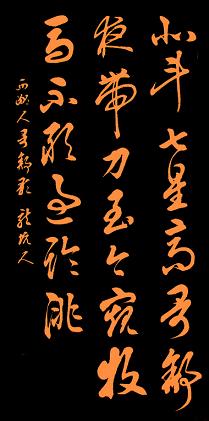 北斗七星高哥舒
夜帶刀至今窺牧
馬不敢過臨洮
西鄙人哥舒歌